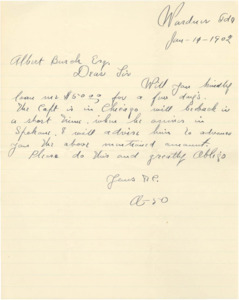 Wardner Ida
Jan-10-1902
Albert Burch Esq.
Dear Sir
Will you kindly
loan me $50.00 for a few days.
The Capt is in Chicago will be back in
a short time. when he arrives in
Spokane, I will advise him to advance
you the above mentioned amount.
Please do this and greatly Oblige
Yours